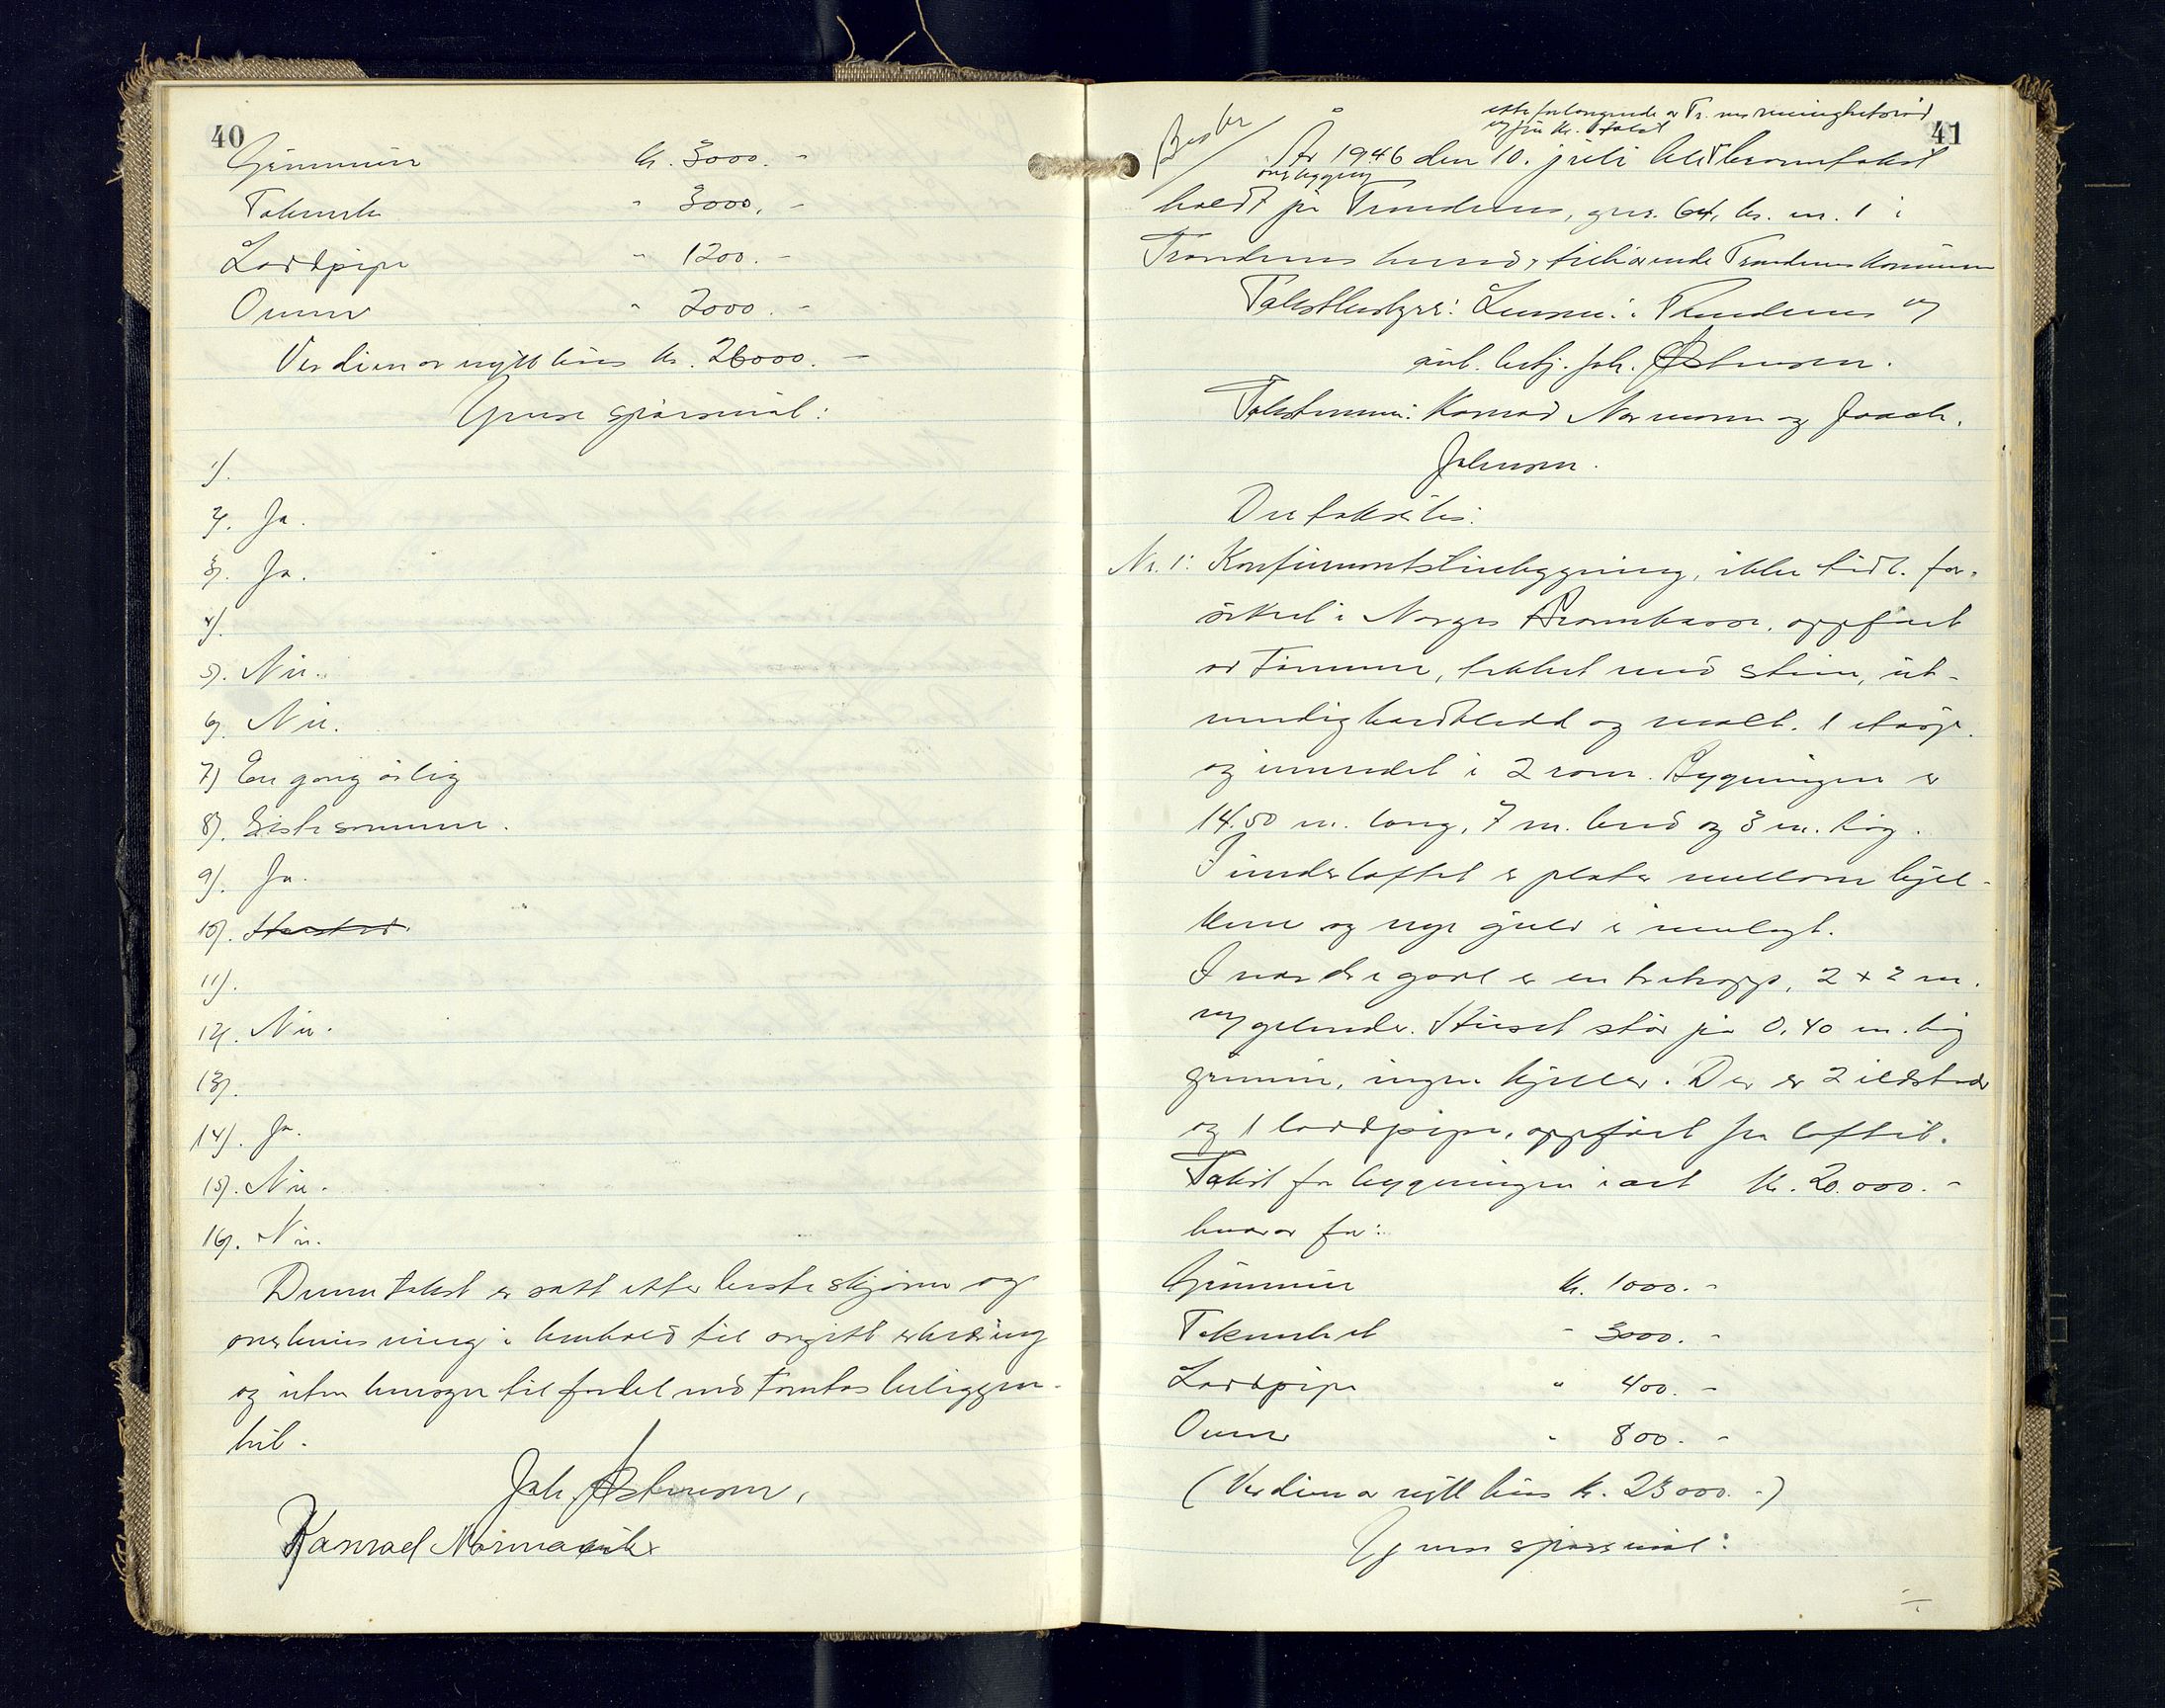 40
Grunnmur kr. 3000.-
Takverk " 3000.-
Loddpipe " 1200.-
Ovner " 2000.-
Verdien av nytt hus kr. 26000.-
Ymse spørsmål:
1).
2). Ja.
3). Ja.
4).
5). Nei.
6). Nei.
7) En gang årlig
8). Siste sommer.
9). Ja.
10). Harstad.
11).
12). Nei.
13).
14). Ja.
15). Nei.
16). Nei.
Denne takst er satt etter beste skjønn og
overbevisning i henhold til avgitt erklæring
og uten hensyn til fordel ved tomtas beliggen-
het.
Joh. Østensen.
Konrad Normann
41
etter forlangende av Tr. menighetsråd
og fri kr. takst
År 1946 den 10. juli ble branntakst
over bygning
holdt på Trondenes, gnr. 64, br. nr. 1 i
Trondenes herred, tilhørende Trondenes kommune
Takstbestyrer: Lensm. i Trondenes v/
aut. betj. Joh. Østensen.
Takstmenn: Konrad Normann og Jacob
Johnsen.
Det takseres:
Nr. 1: Konfirmantstuebygning, ikke tidl. for-
sikret i Norges Brannkasse, oppført
av tømmer, tekket med stein, ut-
vendig bordkledd og malt. 1 etasje
og innredet i 2 rom. Bygningen er
14.50 m. lang, 7 m. bred og 3 m. høg.
I underloftet er plater mellom bjel-
kene og nye golv er innlagt.
I nordre gavl er en tretrapp, 2 x 2 m.
m/ gelender. Huset står på 0,40 m. høg
grunnmur, ingen kjeller. Der er 2 ildsteder
og 1 loddpipe, oppført fra loftet.
Takst for bygningen i alt kr. 20.000.-
hvorav for:
Grunnmur kr. 1000.-
Takverket " 3000.-
Loddpipe " 400.-
Ovner " 800.-
(Verdien av nytt hus kr. 23000.-)
Ymse spørsmål: